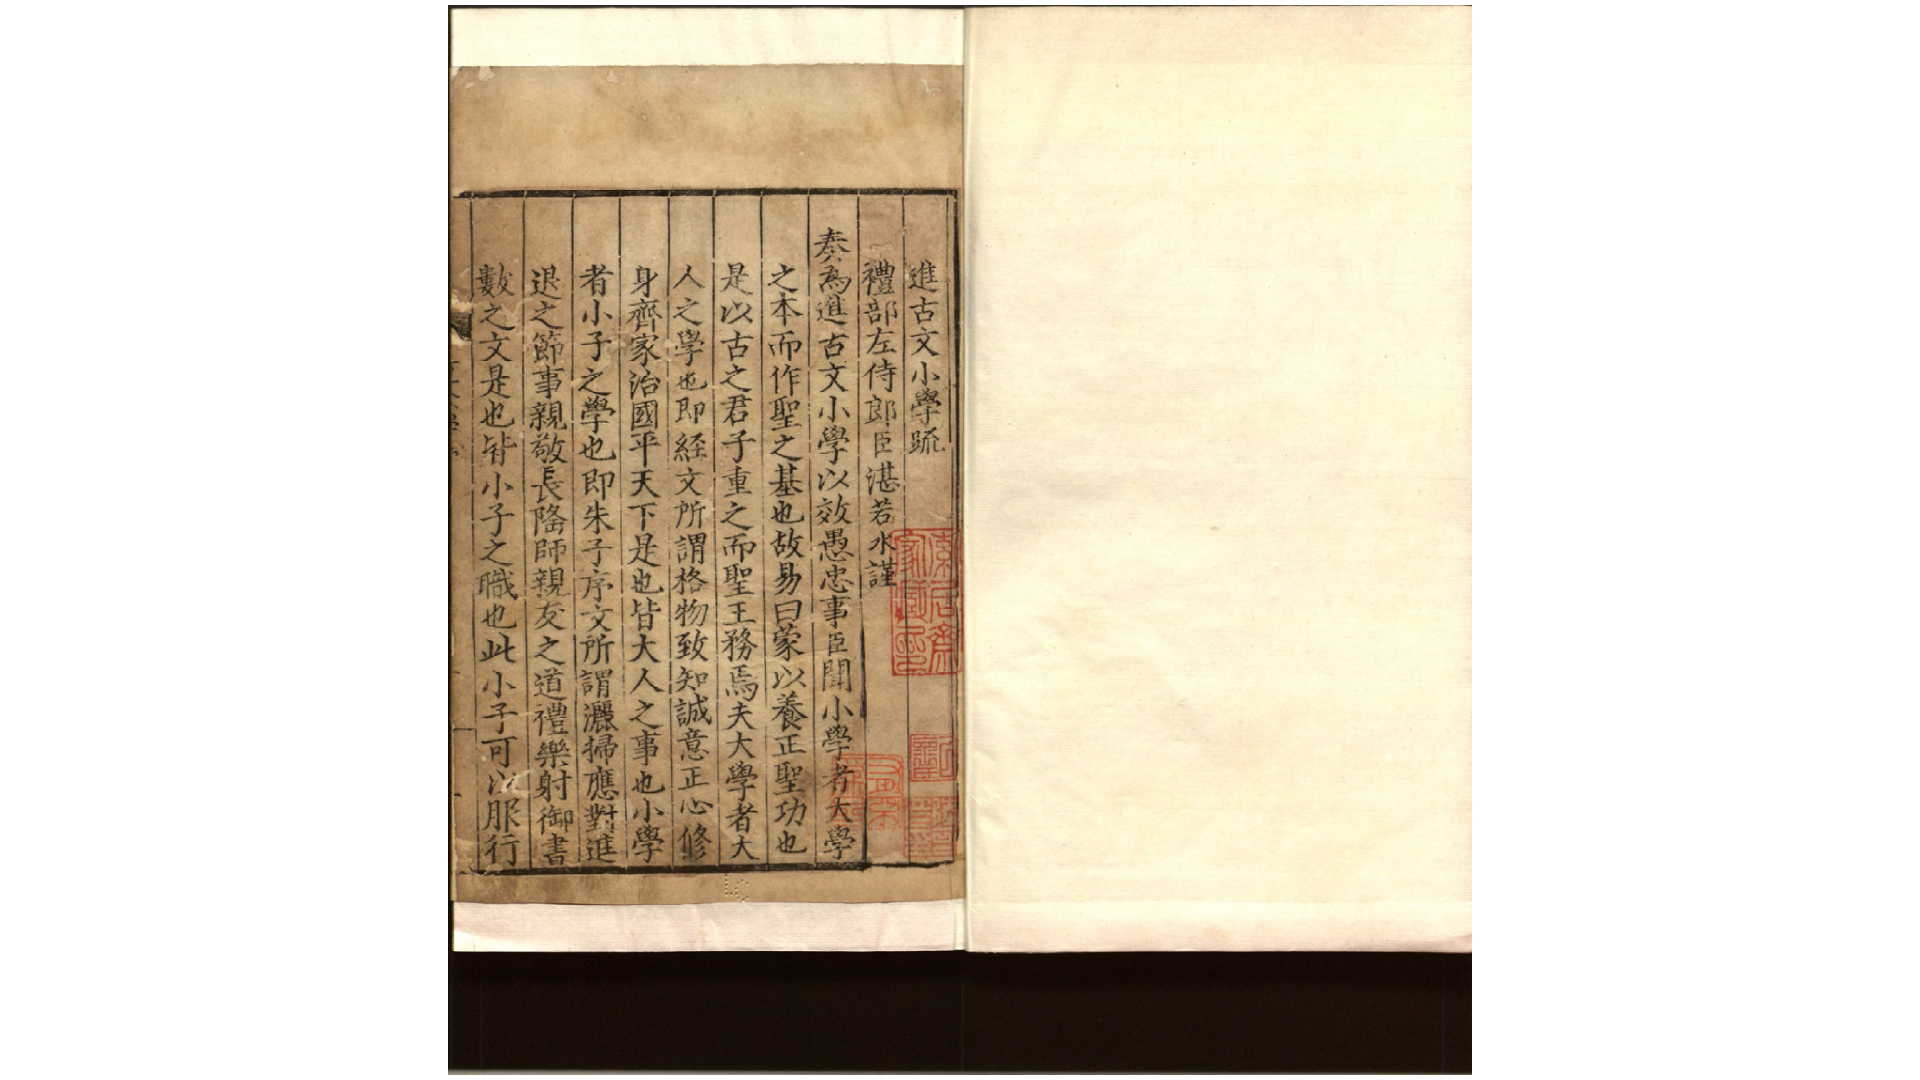 進古文小學疏
禮部左侍郎臣湛若水謹
奏爲進古文小學以效愚忠事臣聞小學者大學
之本而作聖之基也故易曰蒙以養正聖功也
是以古之君子重之而聖王務焉夫大學者大
人之學也即經文所謂格物致知誠意正心修
身齊家治國平天下是也皆大人之事也小學
者小子之學也即朱子序文所謂灑掃應對進
退之節事親敬長隆師親友之道禮樂射御書
數之文是也皆小子之職也此小子可以服行